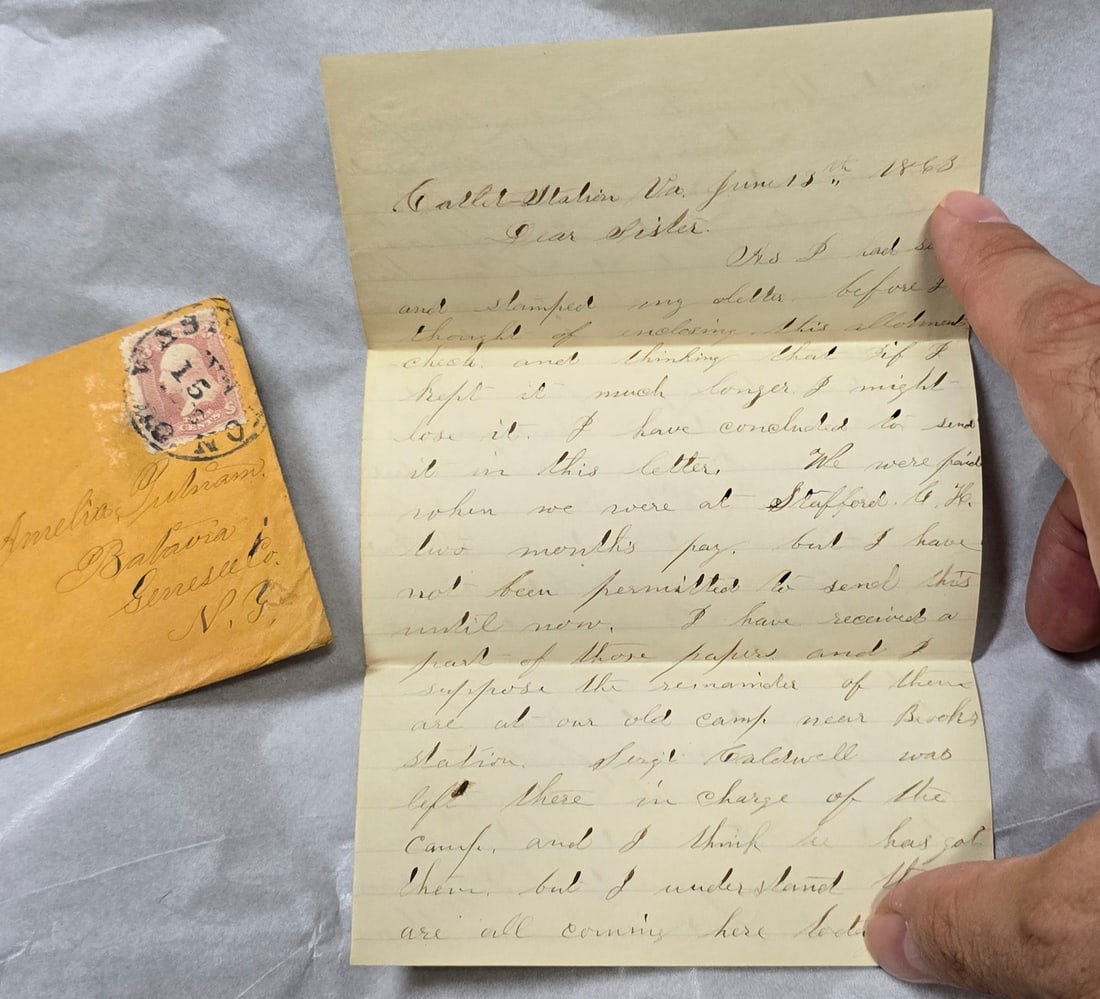 Catlet Station Va. June 15th 1863
Dear Sister.
As I had
and stamped my letter before I
thought of enclosing this allotment
check and thinking that if I
kept it much longer I might
lose it. I have concluded to send
it in this letter. We were paid
when we were at Stafford. C. H.
two month's pay. but I have
not been permitted to send this
until now. I have received a
part of those papers and I
suppose the remainder of them
are at our old camp near Brooks
station. Sergt Caldwell was
left there in charge of the
camp. and I think he has got
them. but I understand
are all coming here
15
CENTS
Amelia Putnam.
Batavia
Genesee Co.
N. Y.